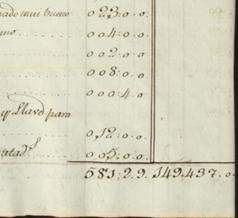 ado mui bueno 0 23:0.0.
mo 0 04:0.0.
0 02:0.0.
0 08:0.0.
0 00:4.0.
y Llave para
0 12:0.0.
0 05:0.0.
581:2.9. 149.437.0